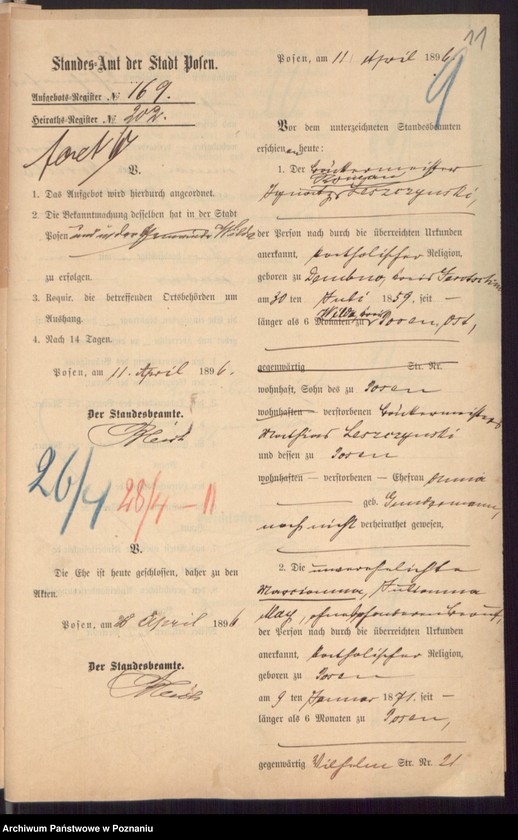 Standes-Amt der Stadt Posen.
Aufgebots-Register № 169.
Heiraths-Register № 202.
V.
1. Das Aufgebot wird hierdurch angeordnet.
2. Die Bekanntmachung desselben hat in der Stadt
Posen und in der Gemeinde Wilda
zu erfolgen.
3. Requir. die betreffenden Ortsbehörden um
Aushang.
4. Nach 14 Tagen.
Posen, am 11. April 1896.
Der Standesbeamte.
26/4 28/4 - 11
V.
Die Ehe ist heute geschlossen, daher zu den
Akten.
Posen, am 28 April 1896
Der Standesbeamte.
11
Posen, am 11 April 1896.
9
Vor dem unterzeichneten Standesbeamten
erschienen heute:
1. Der Brückermeister
Roman
Ignatz Leszczynski,
der Person nach durch die überreichten Urkunden
anerkannt, katholischer Religion,
geboren zu Dembno, Kreis Jarotschin
am 30 ten Juli 1859. seit —
Wilda bei
länger als 6 Monaten zu Posen, Ost,
gegenwärtig Str. Nr.
wohnhaft, Sohn des zu Posen
wohnhaften — verstorbenen Brückermeisters
Mathias Leszczynski
und dessen zu Posen
wohnhaften — verstorbenen — Ehefrau Anna
geb.
noch nicht verheirathet gewesen,
2. Die unverehelichte
Marianna, Julianna
May, ohne besonderen Beruf,
der Person nach durch die überreichten Urkunden
anerkannt, katholischer Religion,
geboren zu Posen
am 9 ten Januar 1871. seit —
länger als 6 Monaten zu Posen,
gegenwärtig Wilhelm Str. Nr. 21
Archiwum Państwowe w Poznaniu